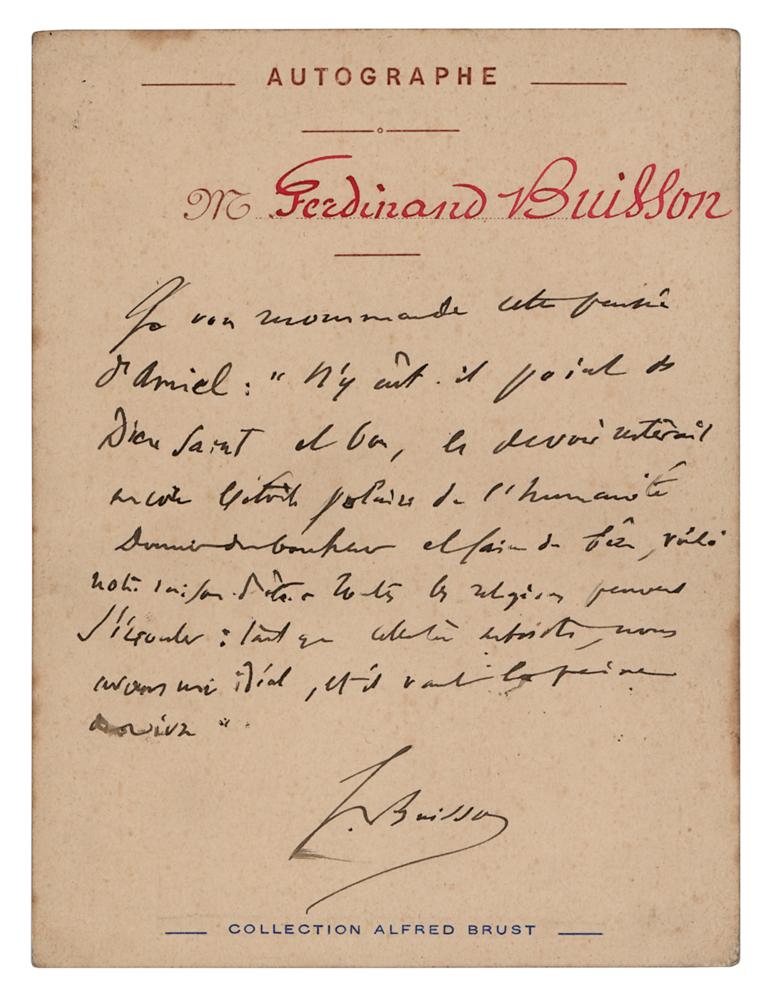 AUTOGRAPHE
M Ferdinand Buisson
Je vous recommande cette pensée
d'Amiel : " N'y eût-il point de
Dieu Saint et bon, le devoir resterait
encore l'étoile polaire de l'humanité
Donner du bonheur et faire du bien, voilà
notre raison d'être. Toutes les religions peuvent
s'écrouler : tant que celle-là subsiste, nous
avons un idéal, et il vaut la peine
de vivre "
F. Buisson
COLLECTION ALFRED BRUST